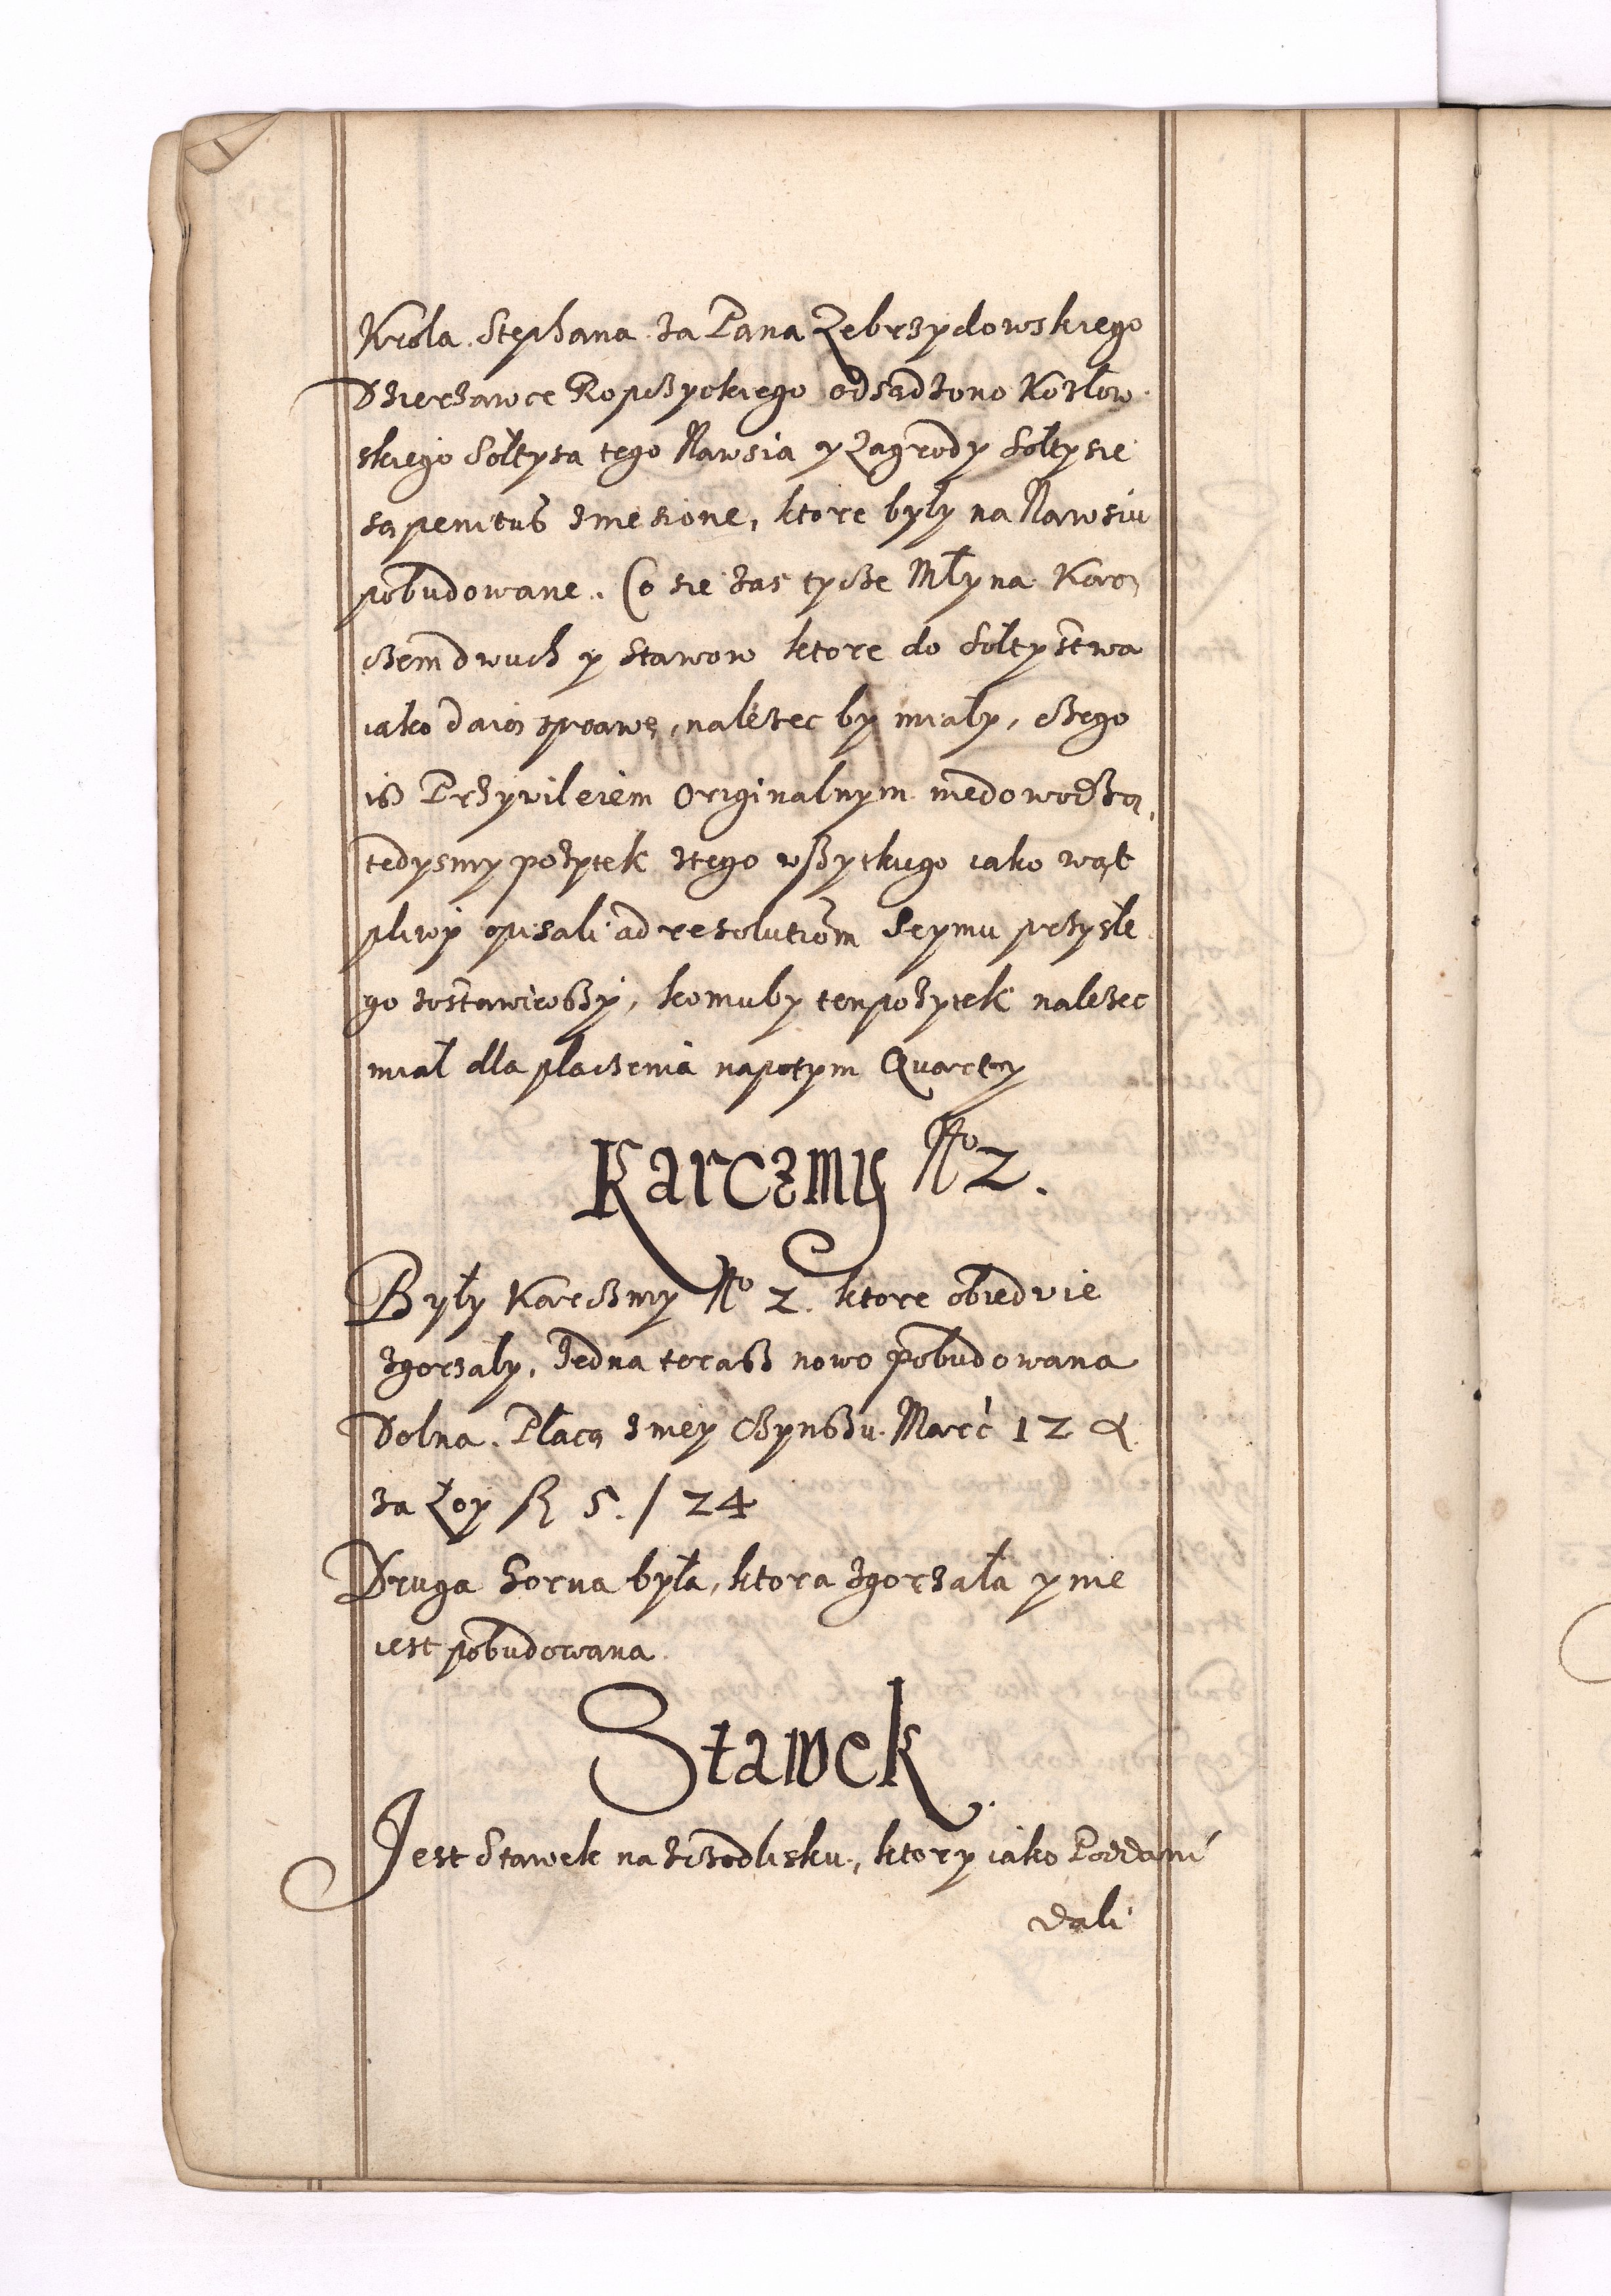 Krola Stephana za Pana Zebrzydowskiego
Dzierzawce Ropczyckiego odsądzono Kozłow
skiego Sołtysa tego Nawsia y Zagrody Sołtysie
są penitus zniesione, ktore były na Nawsiu
pobudowane. Co sie zas tycze Młyna Kar
czem dwuch y Stawow ktore do Sołtystwa
iako daią sprawę, nalezec by miały, czego
isz Przyvileiem Originalnym niedowodzą,
tedysmy pozytek ztego wszytkiego iako wąt
pliwy opisali ad resolutiom Seymu przysłe
go zostawiwszy, komuby ten pozytek nalezec
miał dla płaczenia napotym Quarty
Karczmy No 2.
Były Karczmy No 2. ktore obiedvie
zgorzały, Jedna terasz nowo pobudowana
Dolna. Płacą zniey Czynszu Marc 12
za Łoy fl 5. / 24
Druga Gorna była, ktora zgorzała y nie
iest pobudowana
Stawek
Jest Stawek na Zrzodlisku, ktory iako Poddani
dali